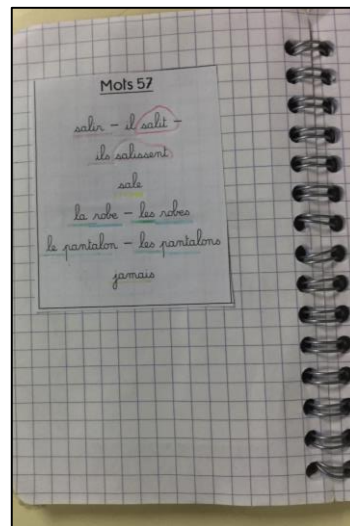 Mots 57
salir - il salit -
ils salissent
sale
la robe - les robes
le pantalon - les pantalons
jamais